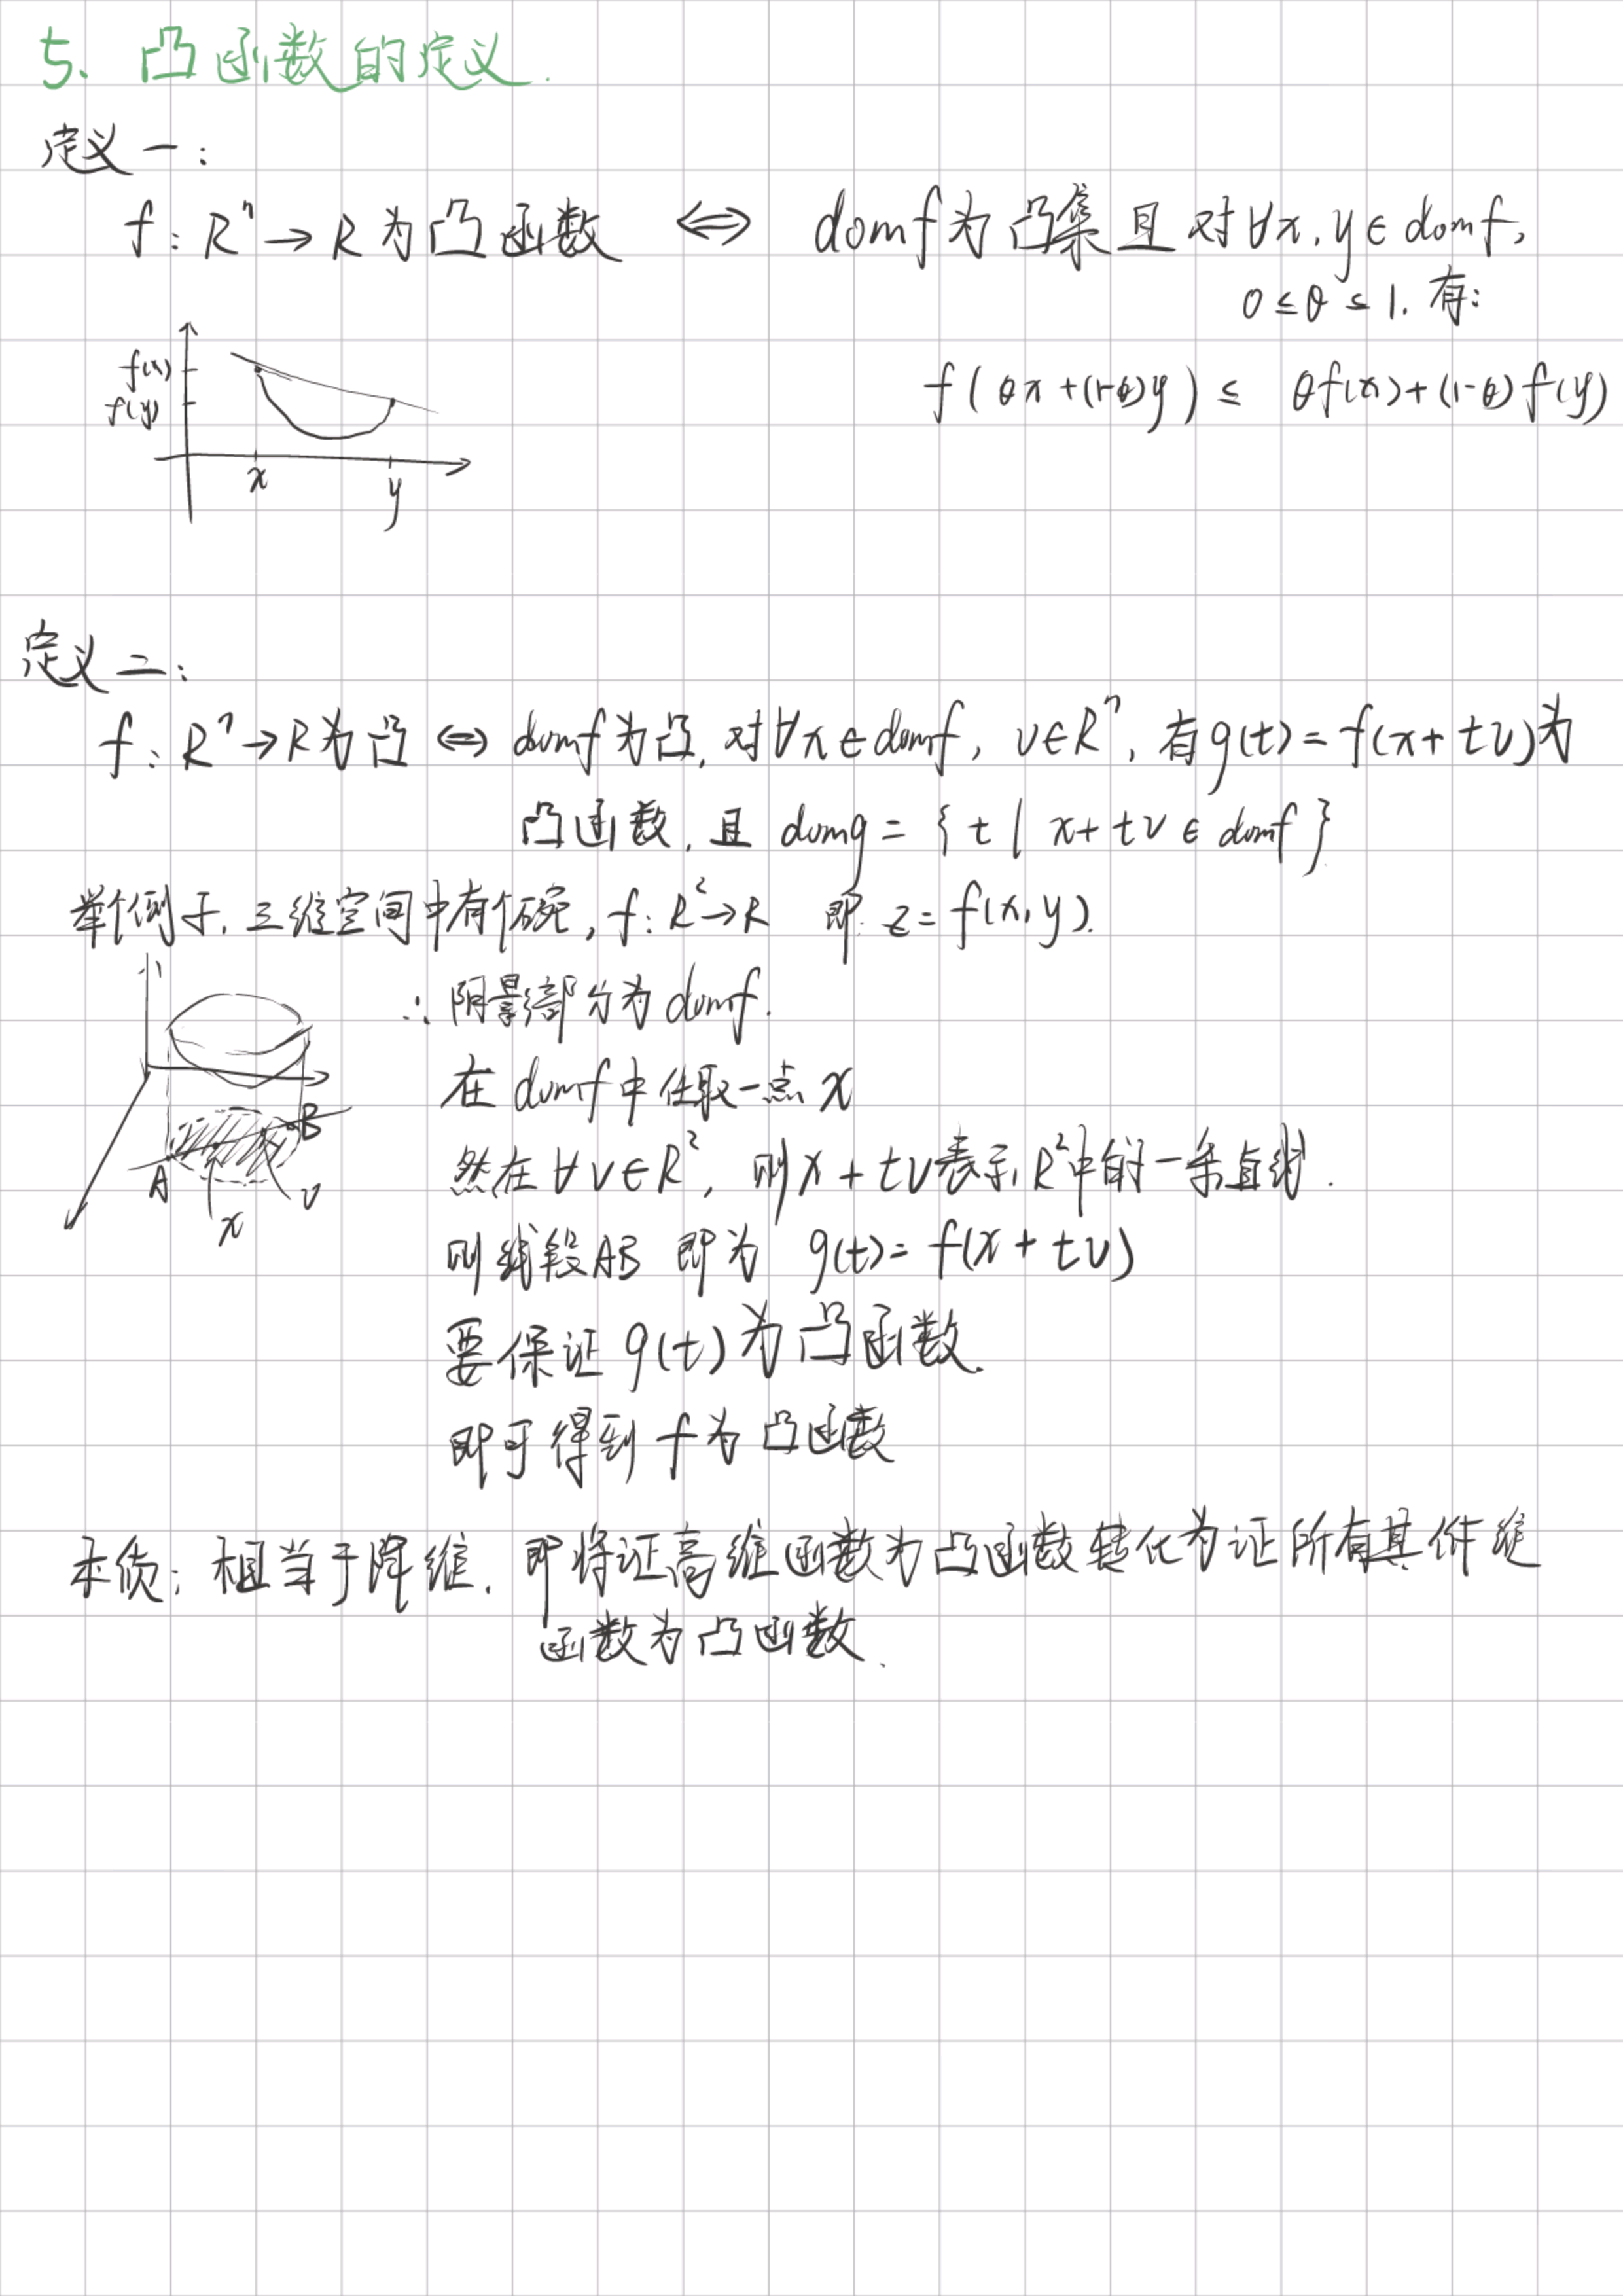 5、凸函数的定义.
定义一:
f: Rⁿ→R 为凸函数 ⇔ domf为凸集且对∀x,y∈domf,
0≤θ≤1. 有:
f(θx+(1-θ)y)≤ θf(x)+(1-θ)f(y)
f(x)
f(y)
x
y
定义二:
f: Rⁿ→R为凸⇔domf为凸,对∀x∈domf, v∈Rⁿ, 有g(t)=f(x+tv)为
凸函数,且 domg = {t | x+tv∈domf}
举个例子,三维空间中有个碗,f: R²→R 即 z=f(x,y).
∴阴影部分为domf.
在domf中任取一点x
然在∀v∈R², 则x+tv表示R²中的一条直线.
B
A
v
x
则线段AB 即为 g(t)=f(x+tv)
要保证g(t)为凸函数.
即可得到f为凸函数
本质: 相当于降维. 即将证高维函数为凸函数转化为证所有其维
函数为凸函数.